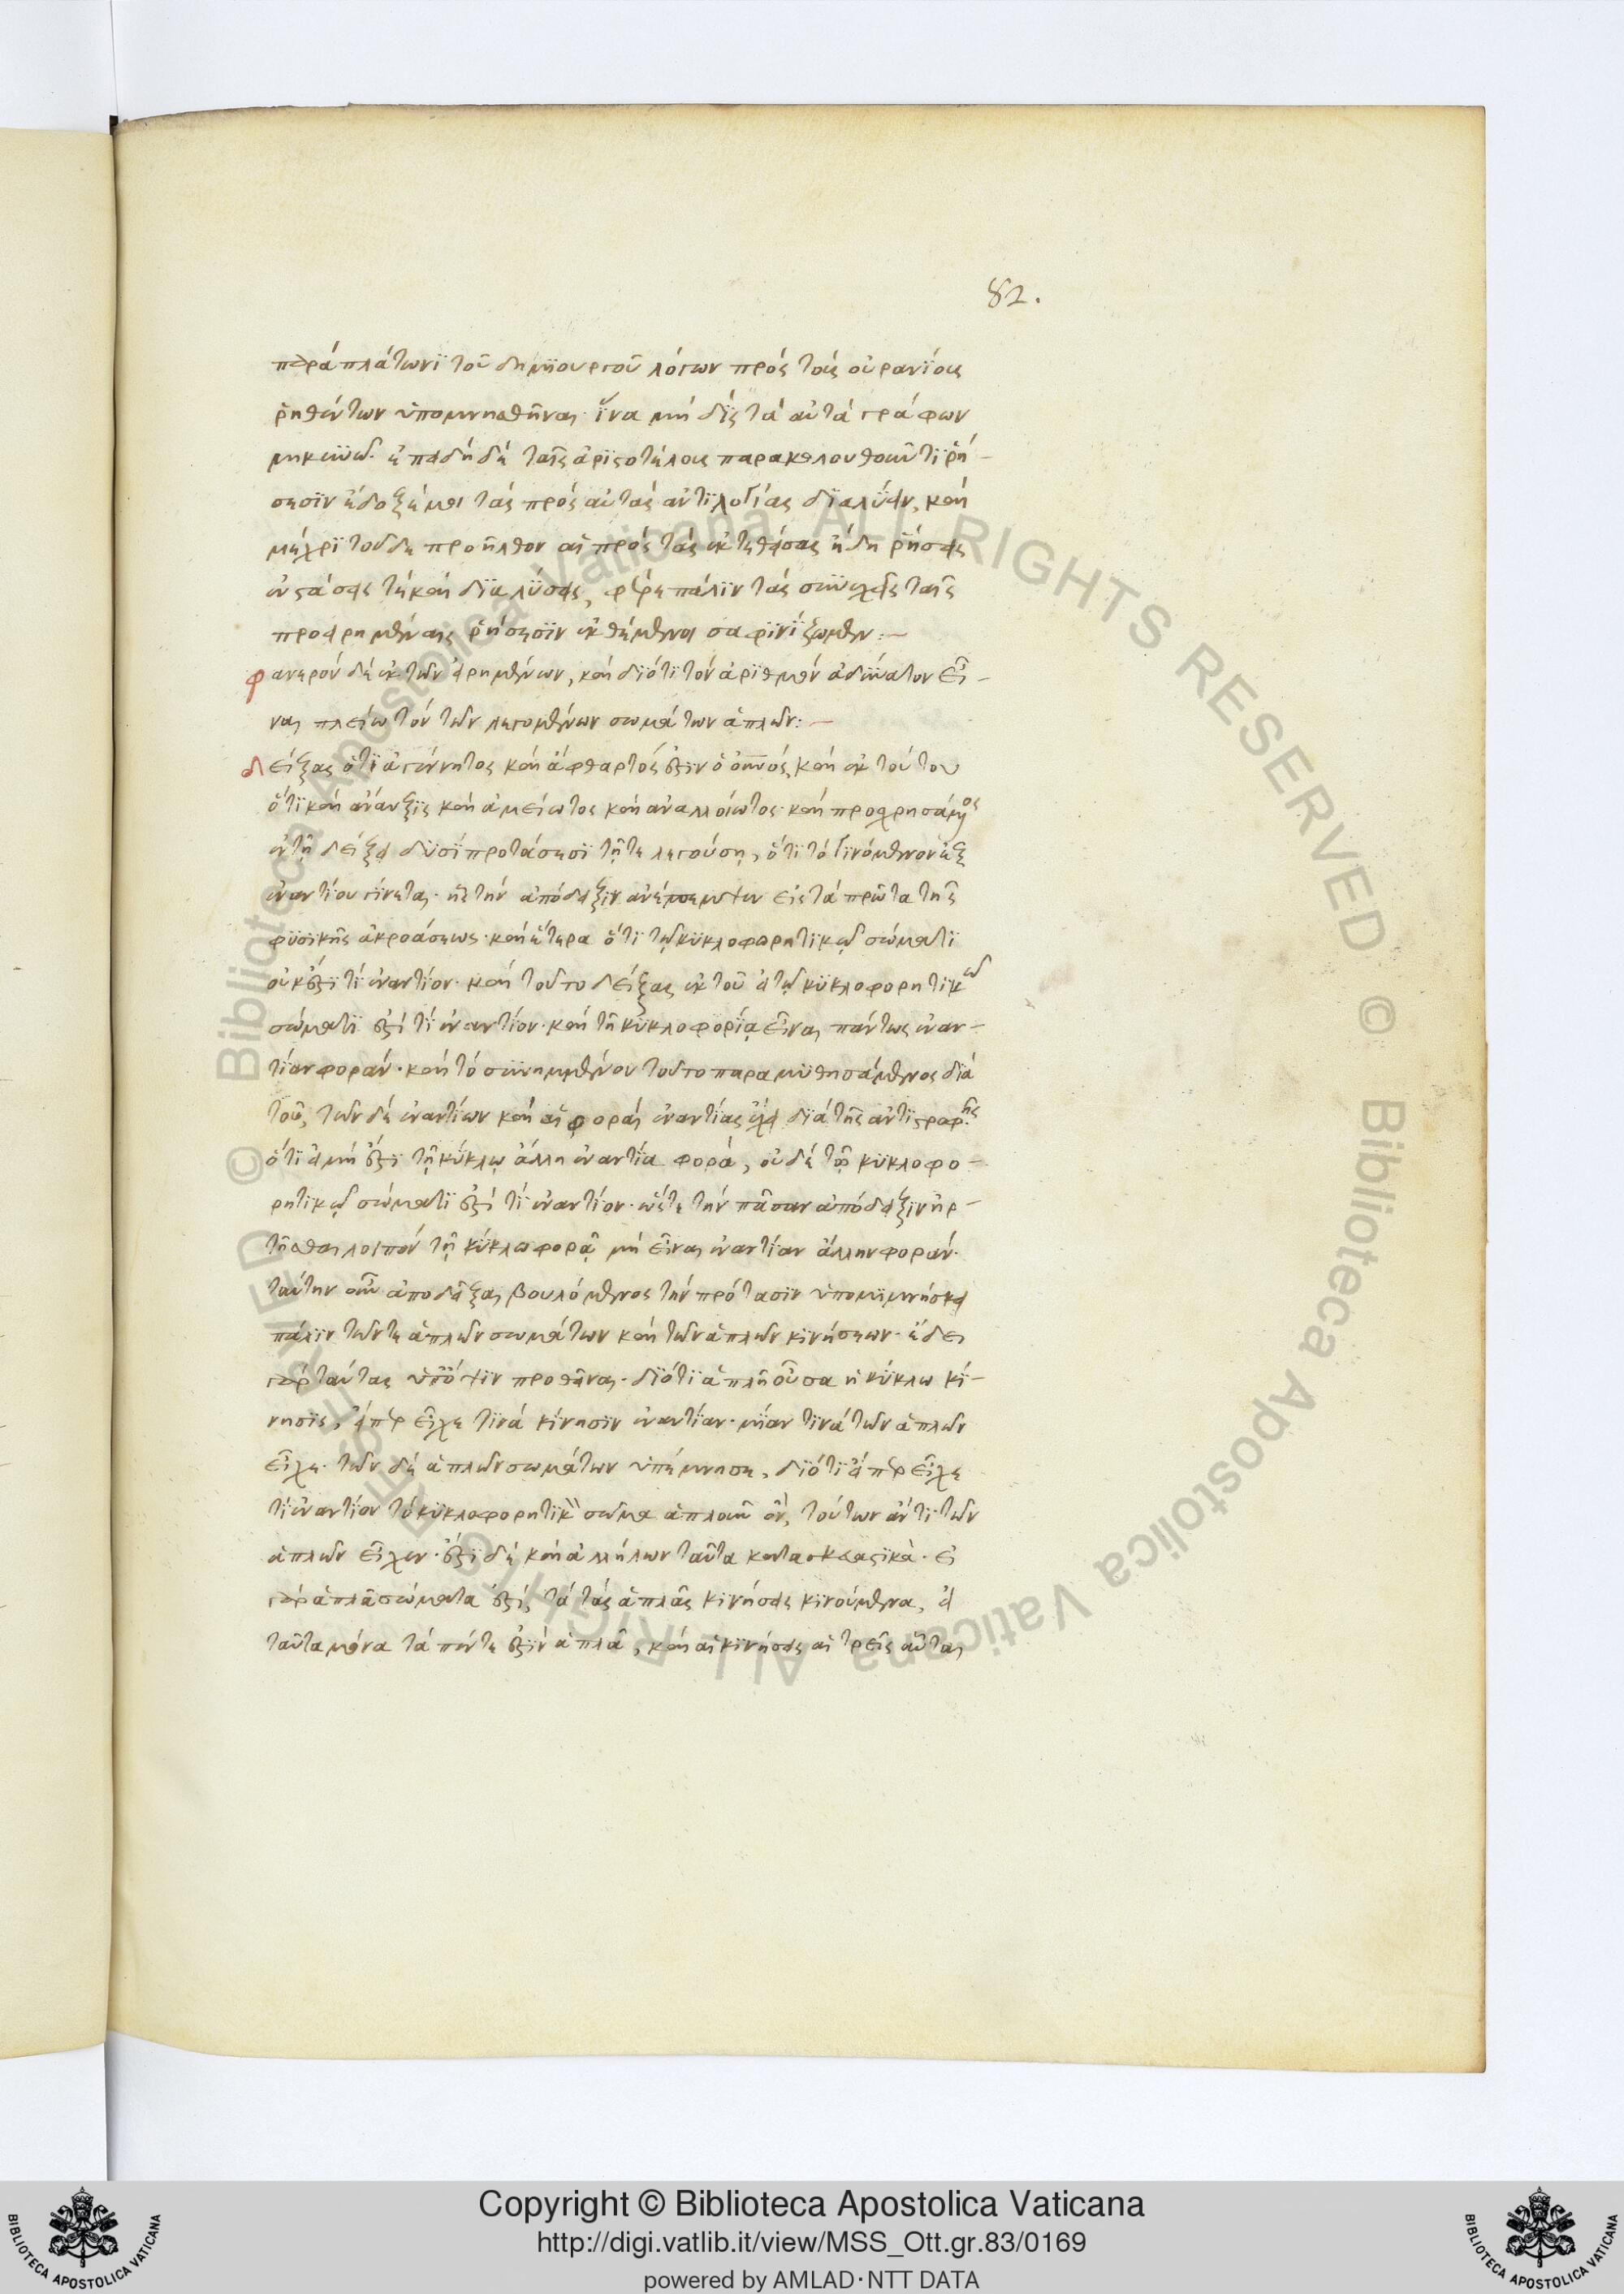 82.
παρὰ πλάτωνι τοῦ δημιουργοῦ λόγων πρὸς τοὺς οὐρανίους
ῥηθέντων ὑπομνησθῆναι ἵνα μὴ δὶς τὰ αὐτὰ γράφων
μηκύνω. ἐπειδὴ δὲ ταῖς ἀριστοτέλους παρακολουθοῦντι ῥή-
σεσιν ἔδοξέ μοι τὰς πρὸς αὐτὰς ἀντιλογίας διαλύειν, καὶ
μέχρι τοῦδε προῆλθον αἱ πρὸς τὰς ἐκτεθείσας ἤδη ῥήσεις
ἐνστάσεις τὲ καὶ διαλύσεις, φέρε πάλιν τὰς συνεχεῖς ταῖς
προειρημέναις ῥήσεσιν ἐκθέμενοι σαφηνίζωμεν:—
φανερὸν δὲ ἐκ τῶν εἰρημένων, καὶ διότι τὸν ἀριθμὸν ἀδύνατον εἶ-
ναι πλείω τὸν τῶν λεγομένων σωμάτων ἁπλῶν:—
δείξας ὅτι ἀγέννητος καὶ ἄφθαρτός ἐστιν ὁ οὐνός, καὶ ἐκ τούτου
ὅτι καὶ ἀναυξὶς καὶ ἀμείωτος καὶ ἀναλλοίωτος· καὶ προσχρησάμενος
ἐν τῇ δείξει δυσὶ προτάσεσι τῇ τε λεγούσῃ, ὅτι τὸ γινόμενον ἐξ
ἐναντίου γίνεται· ἧς τὴν ἀπόδειξιν ἀνέπεμψεν εἰς τὰ πρῶτα τῆς
φυσικῆς ἀκροάσεως· καὶ ἑτέρα ὅτι τῷ κυκλοφορητικῷ σώματι
οὐκ ἔστι τὶ ἐναντίον· καὶ τοῦτο δείξας ἐκ τοῦ εἰ τῷ κυκλοφορητικῷ
σώματι ἐστί τὶ ἐναντίον· καὶ τῇ κυκλοφορίᾳ εἶναι πάντως ἐναν-
τίαν φοράν· καὶ τὸ συνημμένον τοῦτο παραμυθησάμενος διὰ
τοῦ, τῶν δὲ ἐναντίων καὶ αἱ φοραὶ ἐναντίαι ἔχει διὰ τῆς ἀντιστροφῆς
ὅτι εἰ μή ἐστι τῇ κύκλῳ ἄλλη ἐναντία φορά, οὐδὲ τῷ κυκλοφο-
ρητικῷ σώματι ἐστί τὶ ἐναντίον· ὥστε τὴν πᾶσαν ἀπόδειξιν ἠρ-
τῆσθαι λοιπὸν τῇ κύκλω φορᾷ μὴ εἶναι ἐναντίαν ἄλλην φοράν·
ταύτην οὖν ἀποδεῖξαι βουλόμενος τὴν πρότασιν ὑπομιμνήσκει
πάλιν τῶν τε ἁπλῶν σωμάτων καὶ τῶν ἁπλῶν κινήσεων· ἔδει
γὰρ ταύτας ὑπόψιν προθεῖναι· διότι ἁπλῆ οὖσα ἡ κύκλω κί-
νησις, εἴπερ εἶχε τινὰ κίνησιν ἐναντίαν· μίαν τινὰ τῶν ἁπλῶν
εἶχε· τῶν δὲ ἁπλῶν σωμάτων ὑπέμνησε, διότι εἴπερ εἶχε
τὶ ἐναντίον τὸ κυκλοφορητικὸν σῶμα ἁπλοῦν ὄν, τούτων ἄν τι τῶν
ἁπλῶν εἶχεν· ἔστι δὲ καὶ ἀλλήλων ταῦτα κατασκευαστικά· εἰ
γὰρ ἁπλᾶ σώματα ἐστί, τὰ τὰς ἁπλᾶς κινήσεις κινούμενα, εἰ
ταῦτα μόνα τὰ πέντε ἐστὶν ἁπλᾶ, καὶ αἱ κινήσεις αἱ τρεῖς αὗται
Copyright © Biblioteca Apostolica Vaticana
http://digi.vatlib.it/view/MSS_Ott.gr.83/0169
powered by AMLAD·NTT DATA
BIBLIOTECA APOSTOLICA VATICANA
BIBLIOTECA APOSTOLICA VATICANA
© Biblioteca Apostolica Vaticana ALL RIGHTS RESERVED © Biblioteca Apostolica Vaticana ALL RIGHTS RESERVED